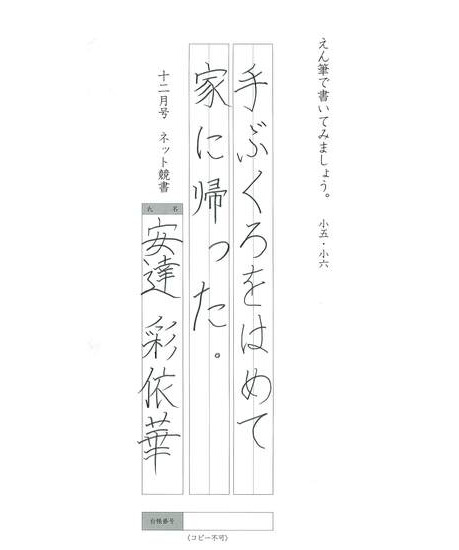 えん筆で書いてみましょう。 小五・小六
手ぶくろをはめて
家に帰った。
十二月号 ネット競書
氏名
安達 彩依華
台帳番号
(コピー不可)